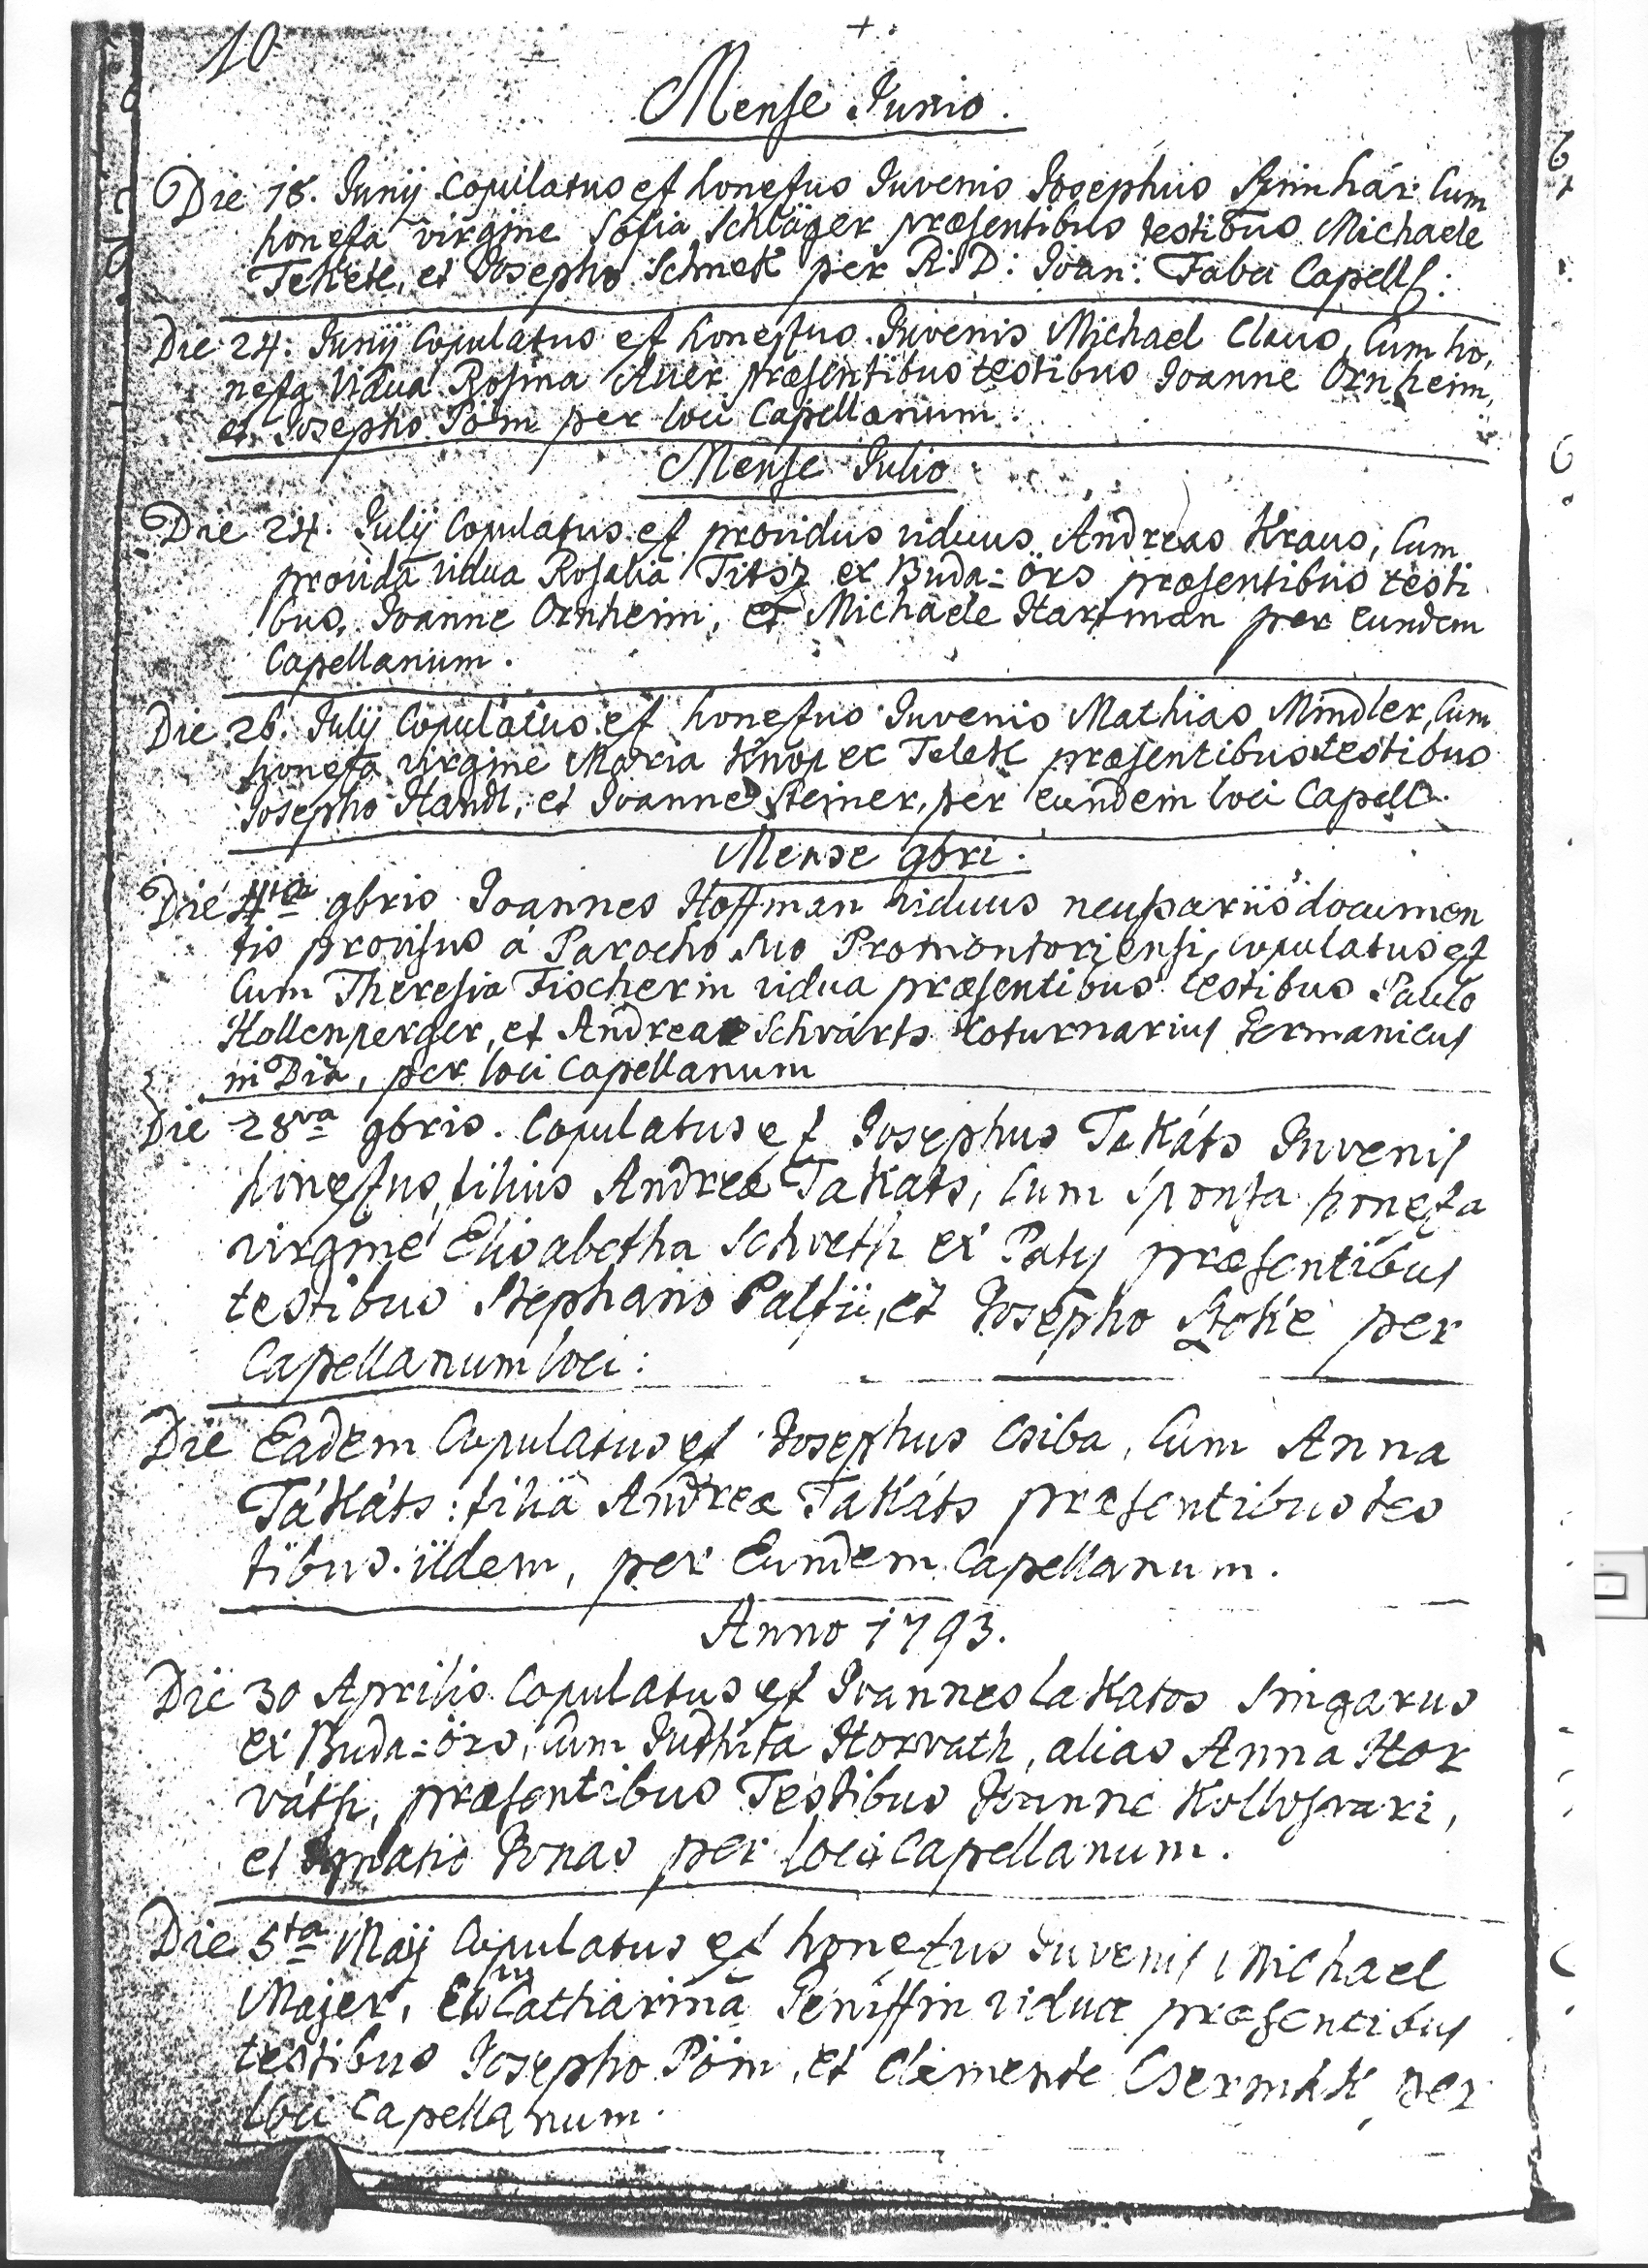 10
Mense Junio.
Die 18. Junij Copulatus est honestus Juvenis Josephus Szimhár Cum
honesta virgine Sofia Schläger præsentibus testibus Michaele
Tekete, et Josepho Schmek per R: D: Joan: Faba Capell:
Die 24. Junij Copulatus est honestus Juvenis Michael Claus, Cum ho,
nesta Vidua Rosina Auer præsentibus testibus Joanne Ornheim,
et Josepho Pöm per loci Capellanum.
Mense Julio
Die 24. Julij Copulatus est providus viduus Andreas Kraus, Cum
provida vidua Rosalia Titsz ex Buda=örs præsentibus testi
bus, Joanne Ornheim, et Michaele Hartman per eundem
Capellanum.
Die 26. Julij Copulatus est honestus Juvenis Mathias Mindler, Cum
honesta virgine Maria Knop ex Telek præsentibus testibus
Josepho Handl, et Joanne Steiner, per eundem loci Capell.
Mense 9bri.
Die 4ta 9bris Joannes Hoffman viduus documen
tis provisus á Parocho suo Promontoriensi, copulatus est
Cum Theresia Fischerin vidua præsentibus testibus Paulo
Hollenperger, et Andrea Schvárts Koturnarius Germanicus
in Dia, per loci Capellanum
Die 28va 9bris. Copulatus est Josephus Takáts Juvenis
honestus, filius Andreæ Takats, Cum Sponsa honesta
virgine Elisabetha Schveth ex Paty præsentibus
testibus Stephano Palfii, et Josepho per
Capellanum loci:
Die Eadem Copulatus est Josephus Csiba, Cum Anna
Tákáts: filia Andreæ Takáts præsentibus tes
tibus iidem, per Eundem Capellanum.
Anno 1793.
Die 30 Aprilis Copulatus est Joannes Lakatos Singarus
ex Buda=örs, cum Juditha Horvath, alias Anna Hor
váth, præsentibus Testibus Joanne Kollosvari,
et Ignatio Jonas per loci Capellanum.
Die 5ta Maij Copulatus est honestus Juvenis Michael
Majer, Catharina Peniffin viduæ præsentibus
testibus Josepho Pöm, et Clemente Csermák per
loci Capellanum.